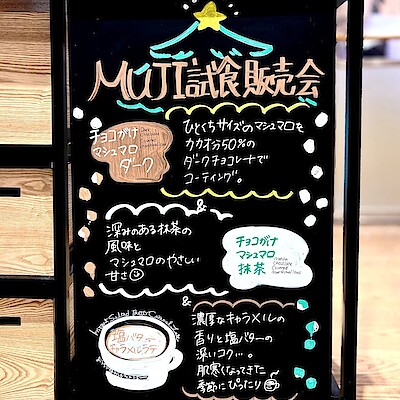 MUJI試食販売会
チョコがけ
マシュマロ
ダーク
ひとくちサイズのマシュマロを
カカオ分50%の
ダークチョコレートで
コーティング。
&
深みのある抹茶の
風味と
マシュマロのやさしい
甘さ
チョコがけ
マシュマロ
抹茶
&
塩バター
キャラメルラテ
濃厚なキャラメルの
香りと塩バターの
深いコク…。
肌寒くなってきた
季節にぴったり